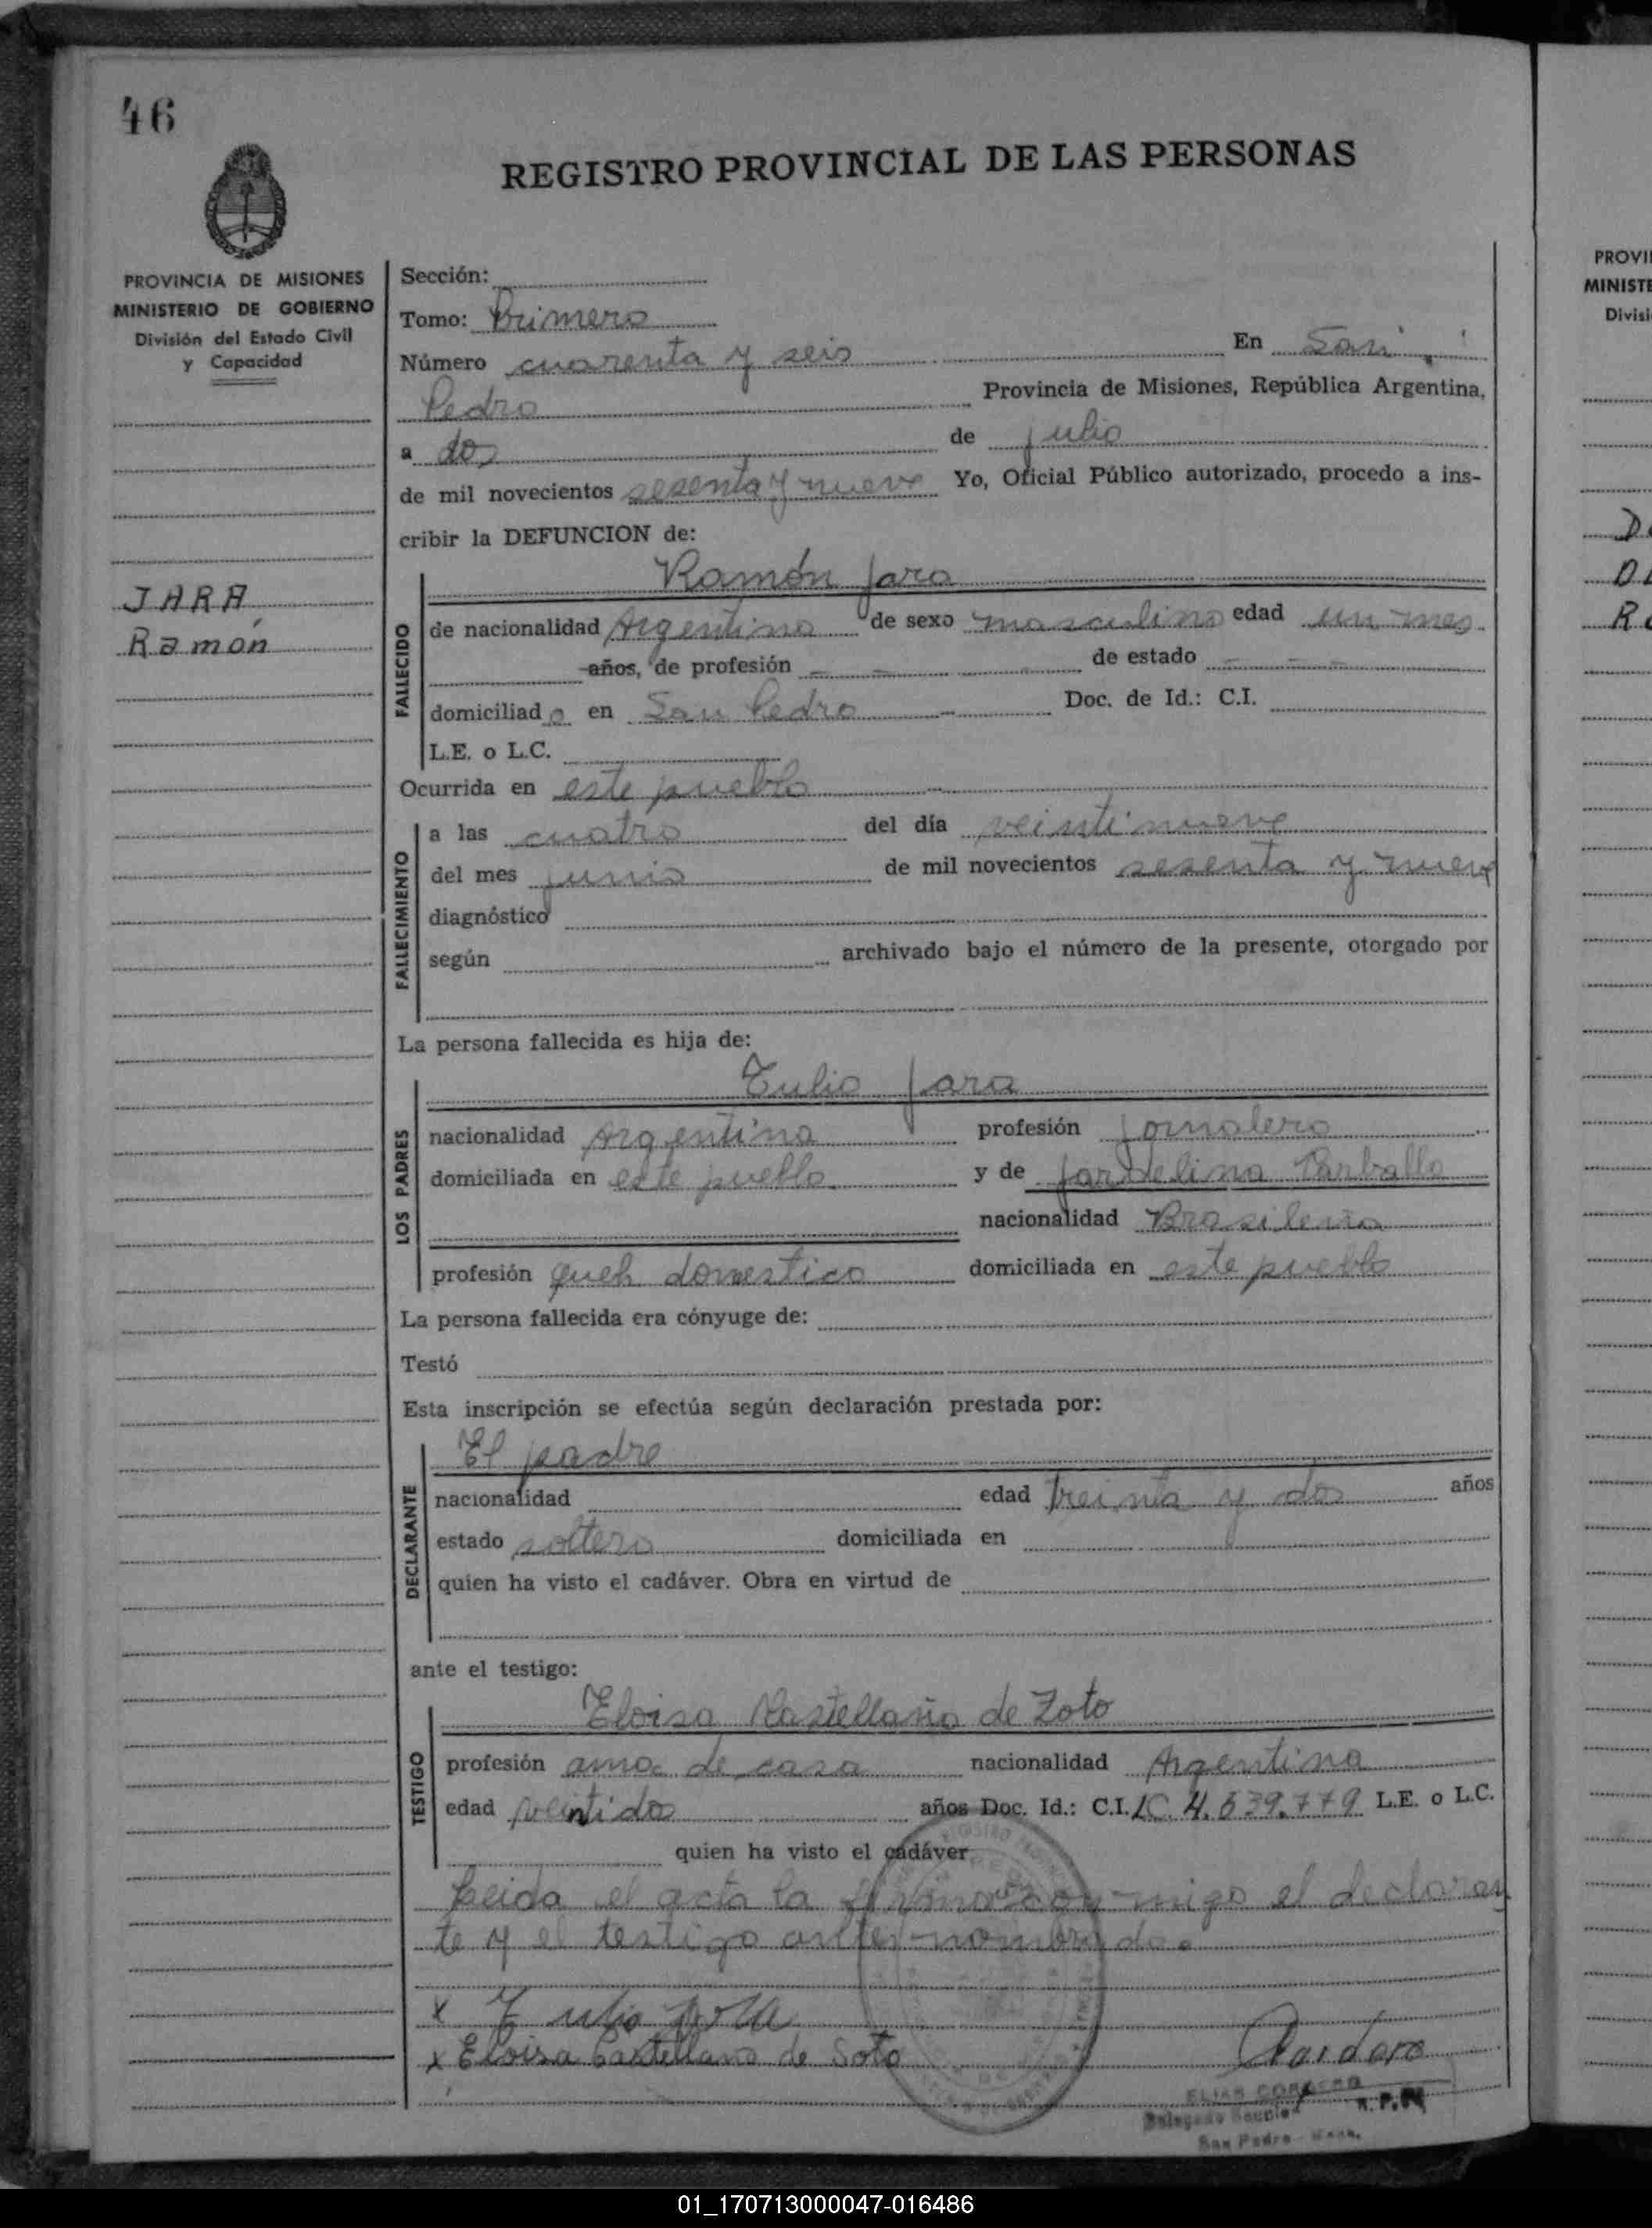 46
REGISTRO PROVINCIAL DE LAS PERSONAS
PROVINCIA DE MISIONES
MINISTERIO DE GOBIERNO
División del Estado Civil
y Capacidad
JARA
Ramón
Sección:
Tomo: Primero
Número cuarenta y seis En San
Pedro Provincia de Misiones, República Argentina,
a dos de julio
de mil novecientos sesenta y nueve Yo, Oficial Público autorizado, procedo a ins-
cribir la DEFUNCION de:
Ramón Jara
FALLECIDO
de nacionalidad Argentino de sexo masculino edad un mes
años, de profesión de estado
domiciliado en San Pedro Doc. de Id.: C.I.
L.E. o L.C.
Ocurrida en este pueblo
FALLECIMIENTO
a las cuatro del día veintinueve
del mes junio de mil novecientos sesenta y nueve
diagnóstico
según archivado bajo el número de la presente, otorgado por
La persona fallecida es hija de:
LOS PADRES
Tulio Jara
nacionalidad Argentina profesión Jornalero
domiciliada en este pueblo y de Jardelina Carballo
nacionalidad Brasilera
profesión queh domestico domiciliada en este pueblo
La persona fallecida era cónyuge de:
Testó
Esta inscripción se efectúa según declaración prestada por:
DECLARANTE
El padre
nacionalidad edad treinta y dos años
estado soltero domiciliada en
quien ha visto el cadáver. Obra en virtud de
ante el testigo:
TESTIGO
Eloisa Kastellano de Zoto
profesión ama de casa nacionalidad Argentina
edad veintidos años Doc. Id.: C.I. LC. 4.539.779 L.E. o L.C.
quien ha visto el cadáver
Leida el acta la firman conmigo el declaran
te y el testigo antes nombrado.
x Tulio Jara
x Eloisa Castellano de Soto
ELIAS CORDERO
San Pedro
PROVI
MINISTE
Divisi
01_170713000047-016486